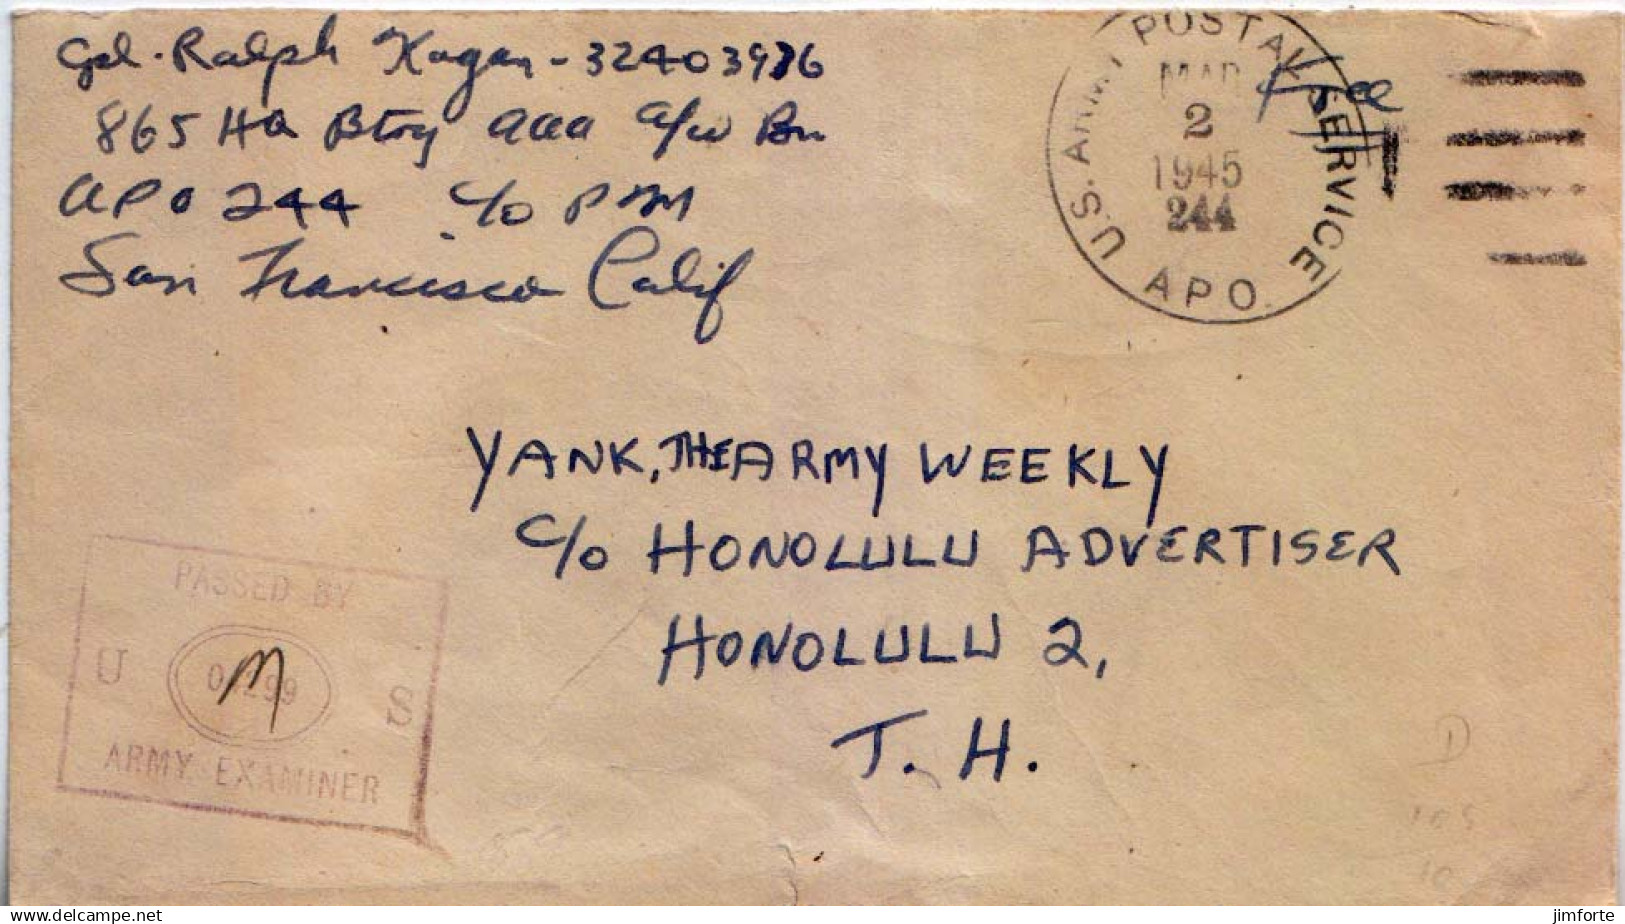 Cpl. Ralph Kagan - 32403986
865 HQ Btry aaa a/w Bn
APO 244 c/o PM
San Francisco Calif
Free
U.S. ARMY POSTAL SERVICE
MAR
2
1945
244
APO
YANK, THE ARMY WEEKLY
c/o HONOLULU ADVERTISER
HONOLULU 2,
T. H.
PASSED BY
U S
M
ARMY EXAMINER
D
105
10
delcampe.net
jimforte